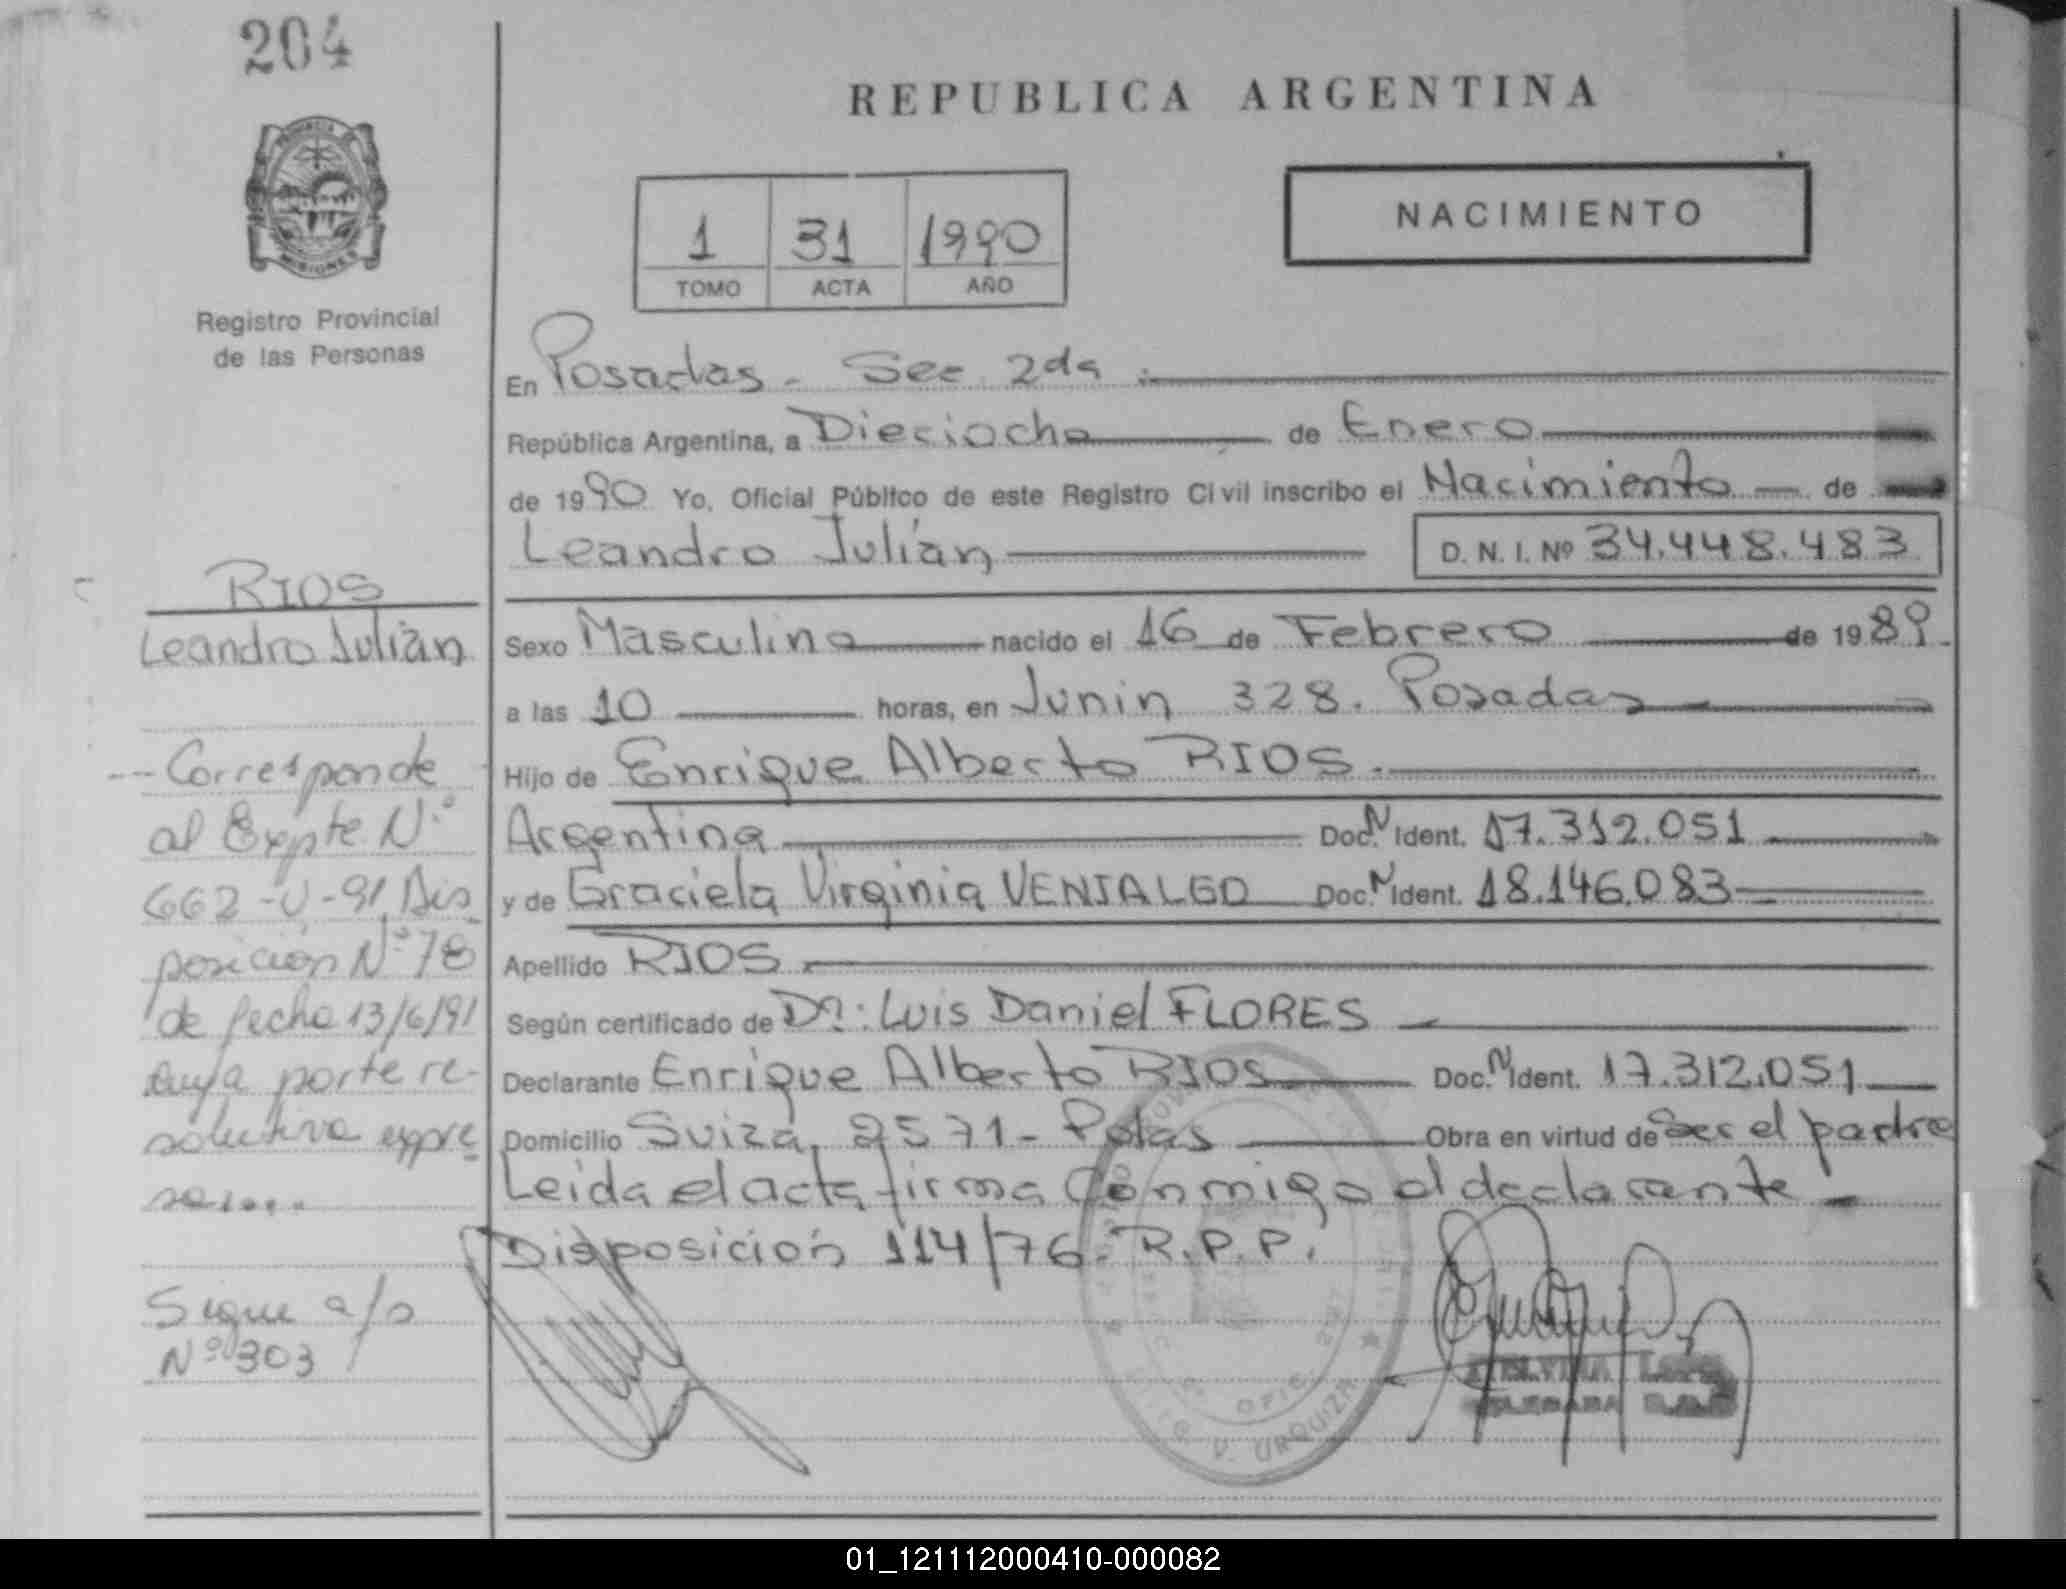 204
PROVINCIA DE
MISIONES
Registro Provincial
de las Personas
RIOS
Leandro Julián
--- Corresponde
al Expte N.°
662-U-91, Dis
posición N° 78
de fecha 13/6/91
cuya parte re-
solutiva expre
sa....
Sigue a/s
Nº 303
REPUBLICA ARGENTINA
NACIMIENTO
1 31 1990
TOMO ACTA AÑO
En Posadas - Sec 2da
República Argentina, a Dieciocho de Enero
de 1990 Yo, Oficial Público de este Registro Civil inscribo el Nacimiento de
Leandro Julián D. N. I. Nº 34.448.483
Sexo Masculino nacido el 16 de Febrero de 1989
a las 10 horas, en Junin 328. Posadas
Hijo de Enrique Alberto RIOS.
Argentina Doc. N Ident. 17.312.051
y de Graciela Virginia VENIALGO Doc. N Ident. 18.146.083
Apellido RIOS
Según certificado de Dr: Luis Daniel FLORES
Declarante Enrique Alberto RIOS Doc. N Ident. 17.312.051
Domicilio Suiza 2571 - Pdas Obra en virtud de Ser el padre
Leida el acta firma conmigo el declarante
Disposición 114/76. R.P.P.
OFIC.
V. URQUIZA
01_121112000410-000082